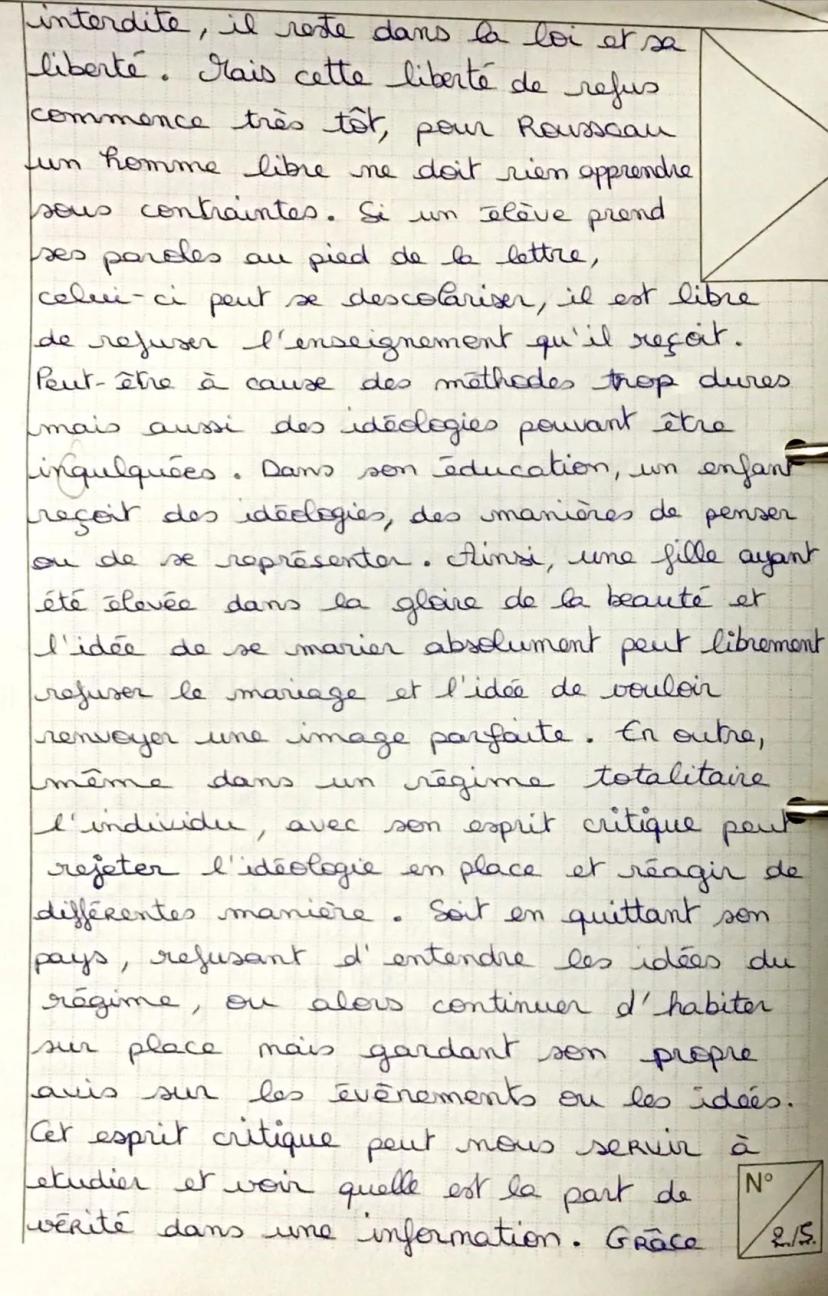 interdite, il reste dans la loi et sa
liberté. Mais cette liberté de refus
commence très tôt, pour Rousseau
un homme libre ne doit rien apprendre
sous contraintes. Si un élève prend
ses paroles au pied de la lettre,
celui-ci peut se descolariser, il est libre
de refuser l'enseignement qu'il reçoit.
Peut-être à cause des méthodes trop dures
mais aussi des idéologies pouvant être
ingulquées. Dans son éducation, un enfant
reçoit des idéologies, des manières de penser
ou de se représenter. Ainsi, une fille ayant
été élevée dans la gloire de la beauté et
l'idée de se marier absolument peut librement
refuser le mariage et l'idée de vouloir
renvoyer une image parfaite. En outre,
même dans un régime totalitaire
l'individu, avec son esprit critique peut
rejeter l'idéologie en place et réagir de
différentes manière. Soit en quittant son
pays, refusant d'entendre les idées du
régime, ou alors continuer d'habiter
sur place mais gardant son propre
avis sur les évènements ou les idées.
Cet esprit critique peut nous servir à
etudier et voir quelle est la part de
vérité dans une information. Grâce
N°
2/5.